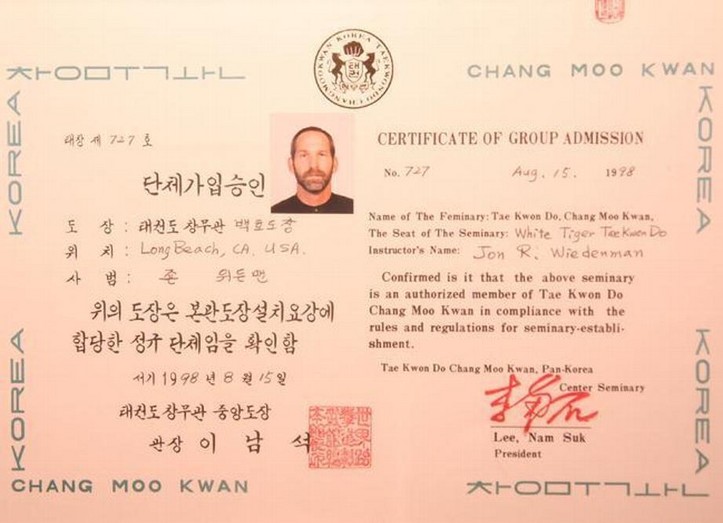 ㅊㅏㅇㅁㅜㄱㅘㄴ
CHANG MOO KWAN
KOREA
KOREA
CHANGMOOKWAN KOREA TAEKWONDO
태권
태창 제 727 호
단체가입승인
도 장 : 태권도 창무관 백호도장
위 치 : Long Beach, CA. USA.
사 범 : 존 위든맨
위의 도장은 본관도장설치요강에
합당한 정규 단체임을 확인함
서기 1998 년 8 월 15 일
태권도 창무관 중앙도장
관장 이 남 석
CERTIFICATE OF GROUP ADMISSION
No. 727 Aug. 15. 1998
Name of The Feminary: Tae Kwon Do, Chang Moo Kwan,
The Seat of The Seminary: White Tiger TaeKwonDo
Instructor's Name: Jon R. Wiedenman
Confirmed is it that the above seminary
is an authorized member of Tae Kwon Do
Chang Moo Kwan in compliance with the
rules and regulations for seminary-establi-
shment.
Tae Kwon Do Chang Moo Kwan, Pan-Korea
Center Seminary
Lee, Nam Suk
President
KOREA
KOREA
CHANG MOO KWAN
ㅊㅏㅇㅁㅜㄱㅘㄴ